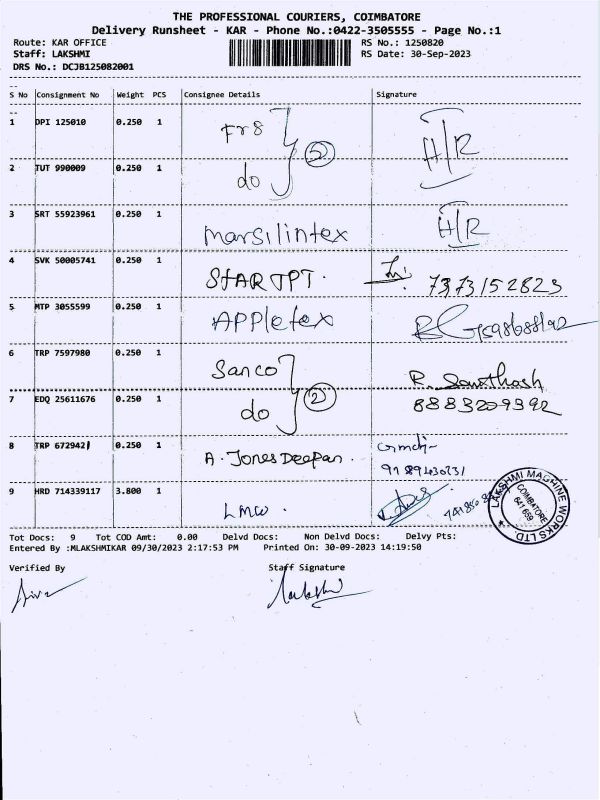 THE PROFESSIONAL COURIERS, COIMBATORE
Delivery Runsheet - KAR - Phone No.:0422-3505555 - Page No.:1
Route: KAR OFFICE RS No.: 1250820
Staff: LAKSHMI RS Date: 30-Sep-2023
DRS No.: DCJB125082001
S No Consignment No Weight PCS Consignee Details Signature
1 DPI 125010 0.250 1 H/R
2 TUT 990009 0.250 1 do
3 SRT 55923961 0.250 1 marsilintex H/R
4 SVK 50005741 0.250 1 STAR JPT. 7373152823
5 MTP 3055599 0.250 1 APPletex
6 TRP 7597980 0.250 1 Sanco R. Santhosh
7 EDQ 25611676 0.250 1 do 2 8883209392
8 TRP 672942 0.250 1 A. Jones Deepan.
9 HRD 714339117 3.800 1 LMW.
LAKSHMI MACHINE WORKS LTD.
COIMBATORE
641 659
Tot Docs: 9 Tot COD Amt: 0.00 Delvd Docs: Non Delvd Docs: Delvy Pts:
Entered By :MLAKSHMIKAR 09/30/2023 2:17:53 PM Printed On: 30-09-2023 14:19:50
Verified By Staff Signature